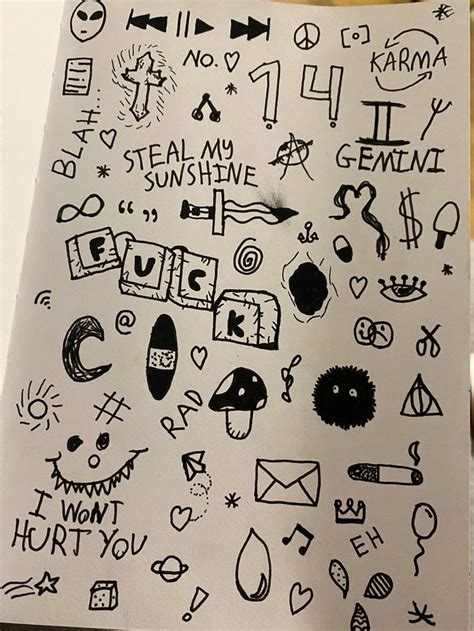 NO. ♡
14
KARMA
BLAH...
STEAL MY
SUNSHINE
GEMINI
“ ”
$
FUCK
@
#
RAD
I WONT
HURT YOU
EH
!